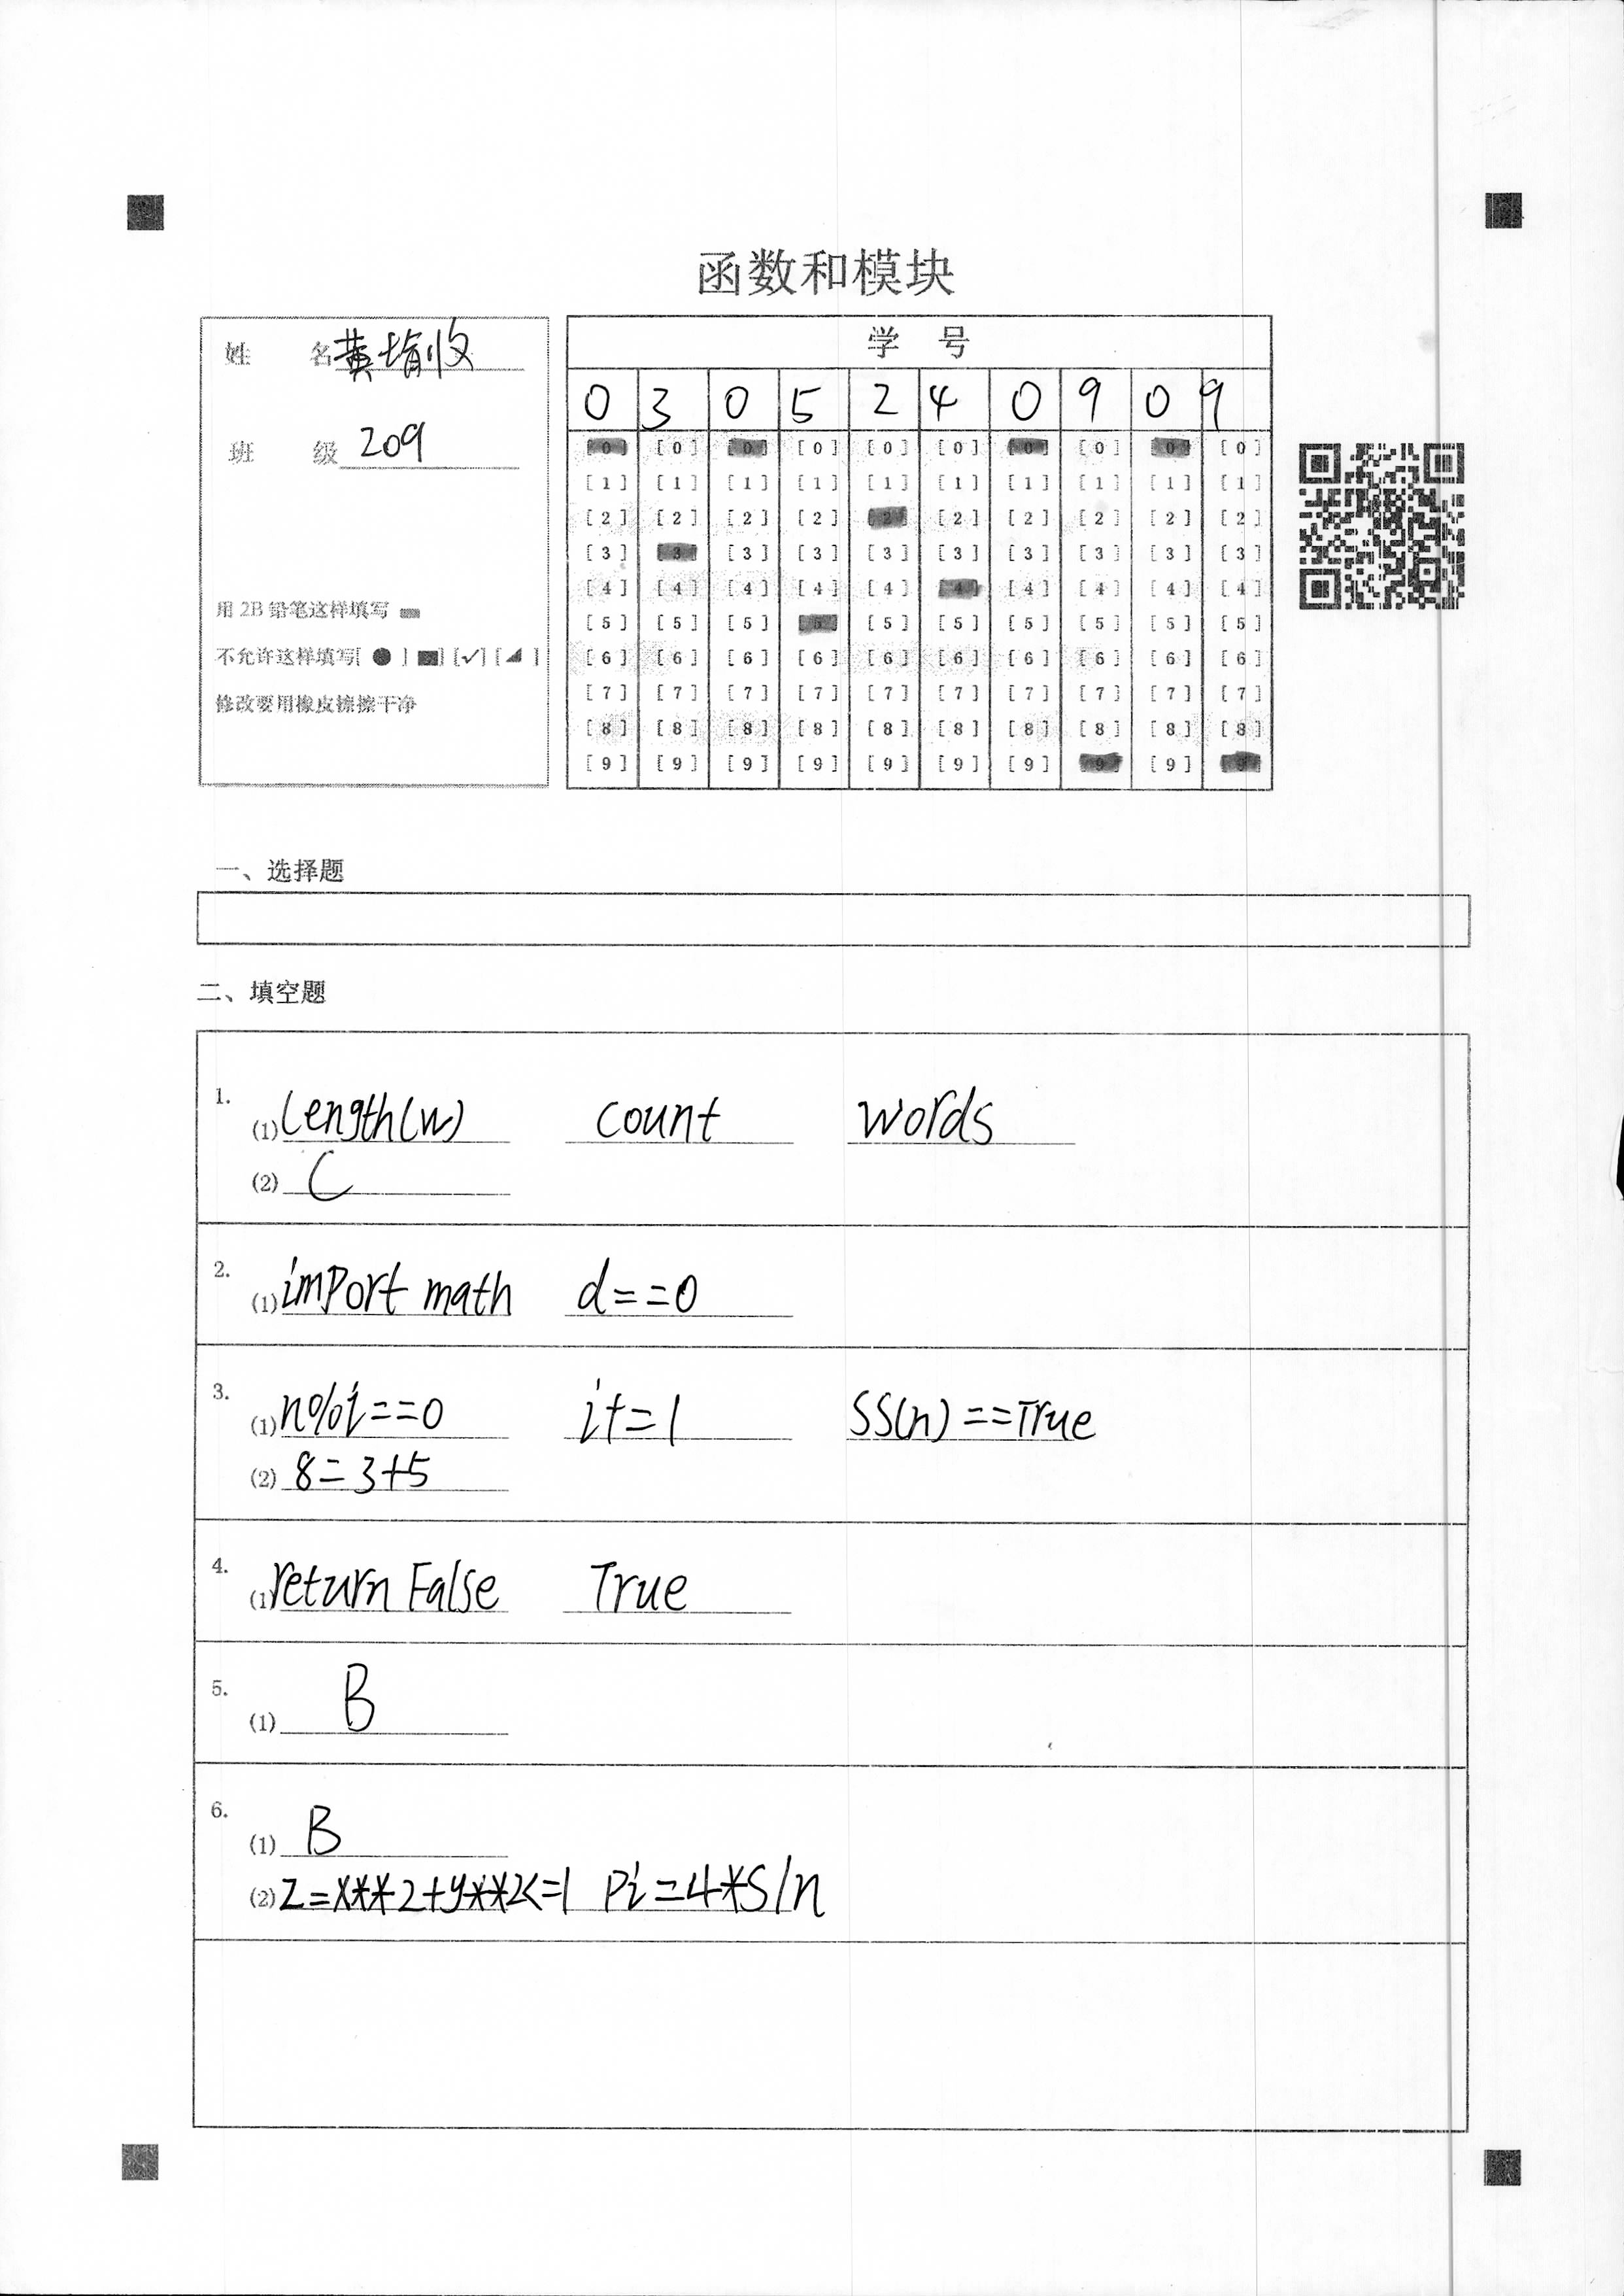 函数和模块
姓 名 黄堉收
班 级 209
用 2B 铅笔这样填写
不允许这样填写[ ● ] [■] [✓] [◢ ]
修改要用橡皮擦擦干净
学 号
0 3 0 5 2 4 0 9 0 9
[0] [0] [0] [0] [0] [0] [0] [0] [0] [0]
[1] [1] [1] [1] [1] [1] [1] [1] [1] [1]
[2] [2] [2] [2] [2] [2] [2] [2] [2] [2]
[3] [3] [3] [3] [3] [3] [3] [3] [3] [3]
[4] [4] [4] [4] [4] [4] [4] [4] [4] [4]
[5] [5] [5] [5] [5] [5] [5] [5] [5] [5]
[6] [6] [6] [6] [6] [6] [6] [6] [6] [6]
[7] [7] [7] [7] [7] [7] [7] [7] [7] [7]
[8] [8] [8] [8] [8] [8] [8] [8] [8] [8]
[9] [9] [9] [9] [9] [9] [9] [9] [9] [9]
一、选择题
二、填空题
1.
(1) length(w) count words
(2) C
2.
(1) import math d==0
3.
(1) n%i==0 i+=1 SS(n)==True
(2) 8=3+5
4.
(1) return False True
5.
(1) B
6.
(1) B
(2) z=x**2+y**2<=1 Pi=4*S/n